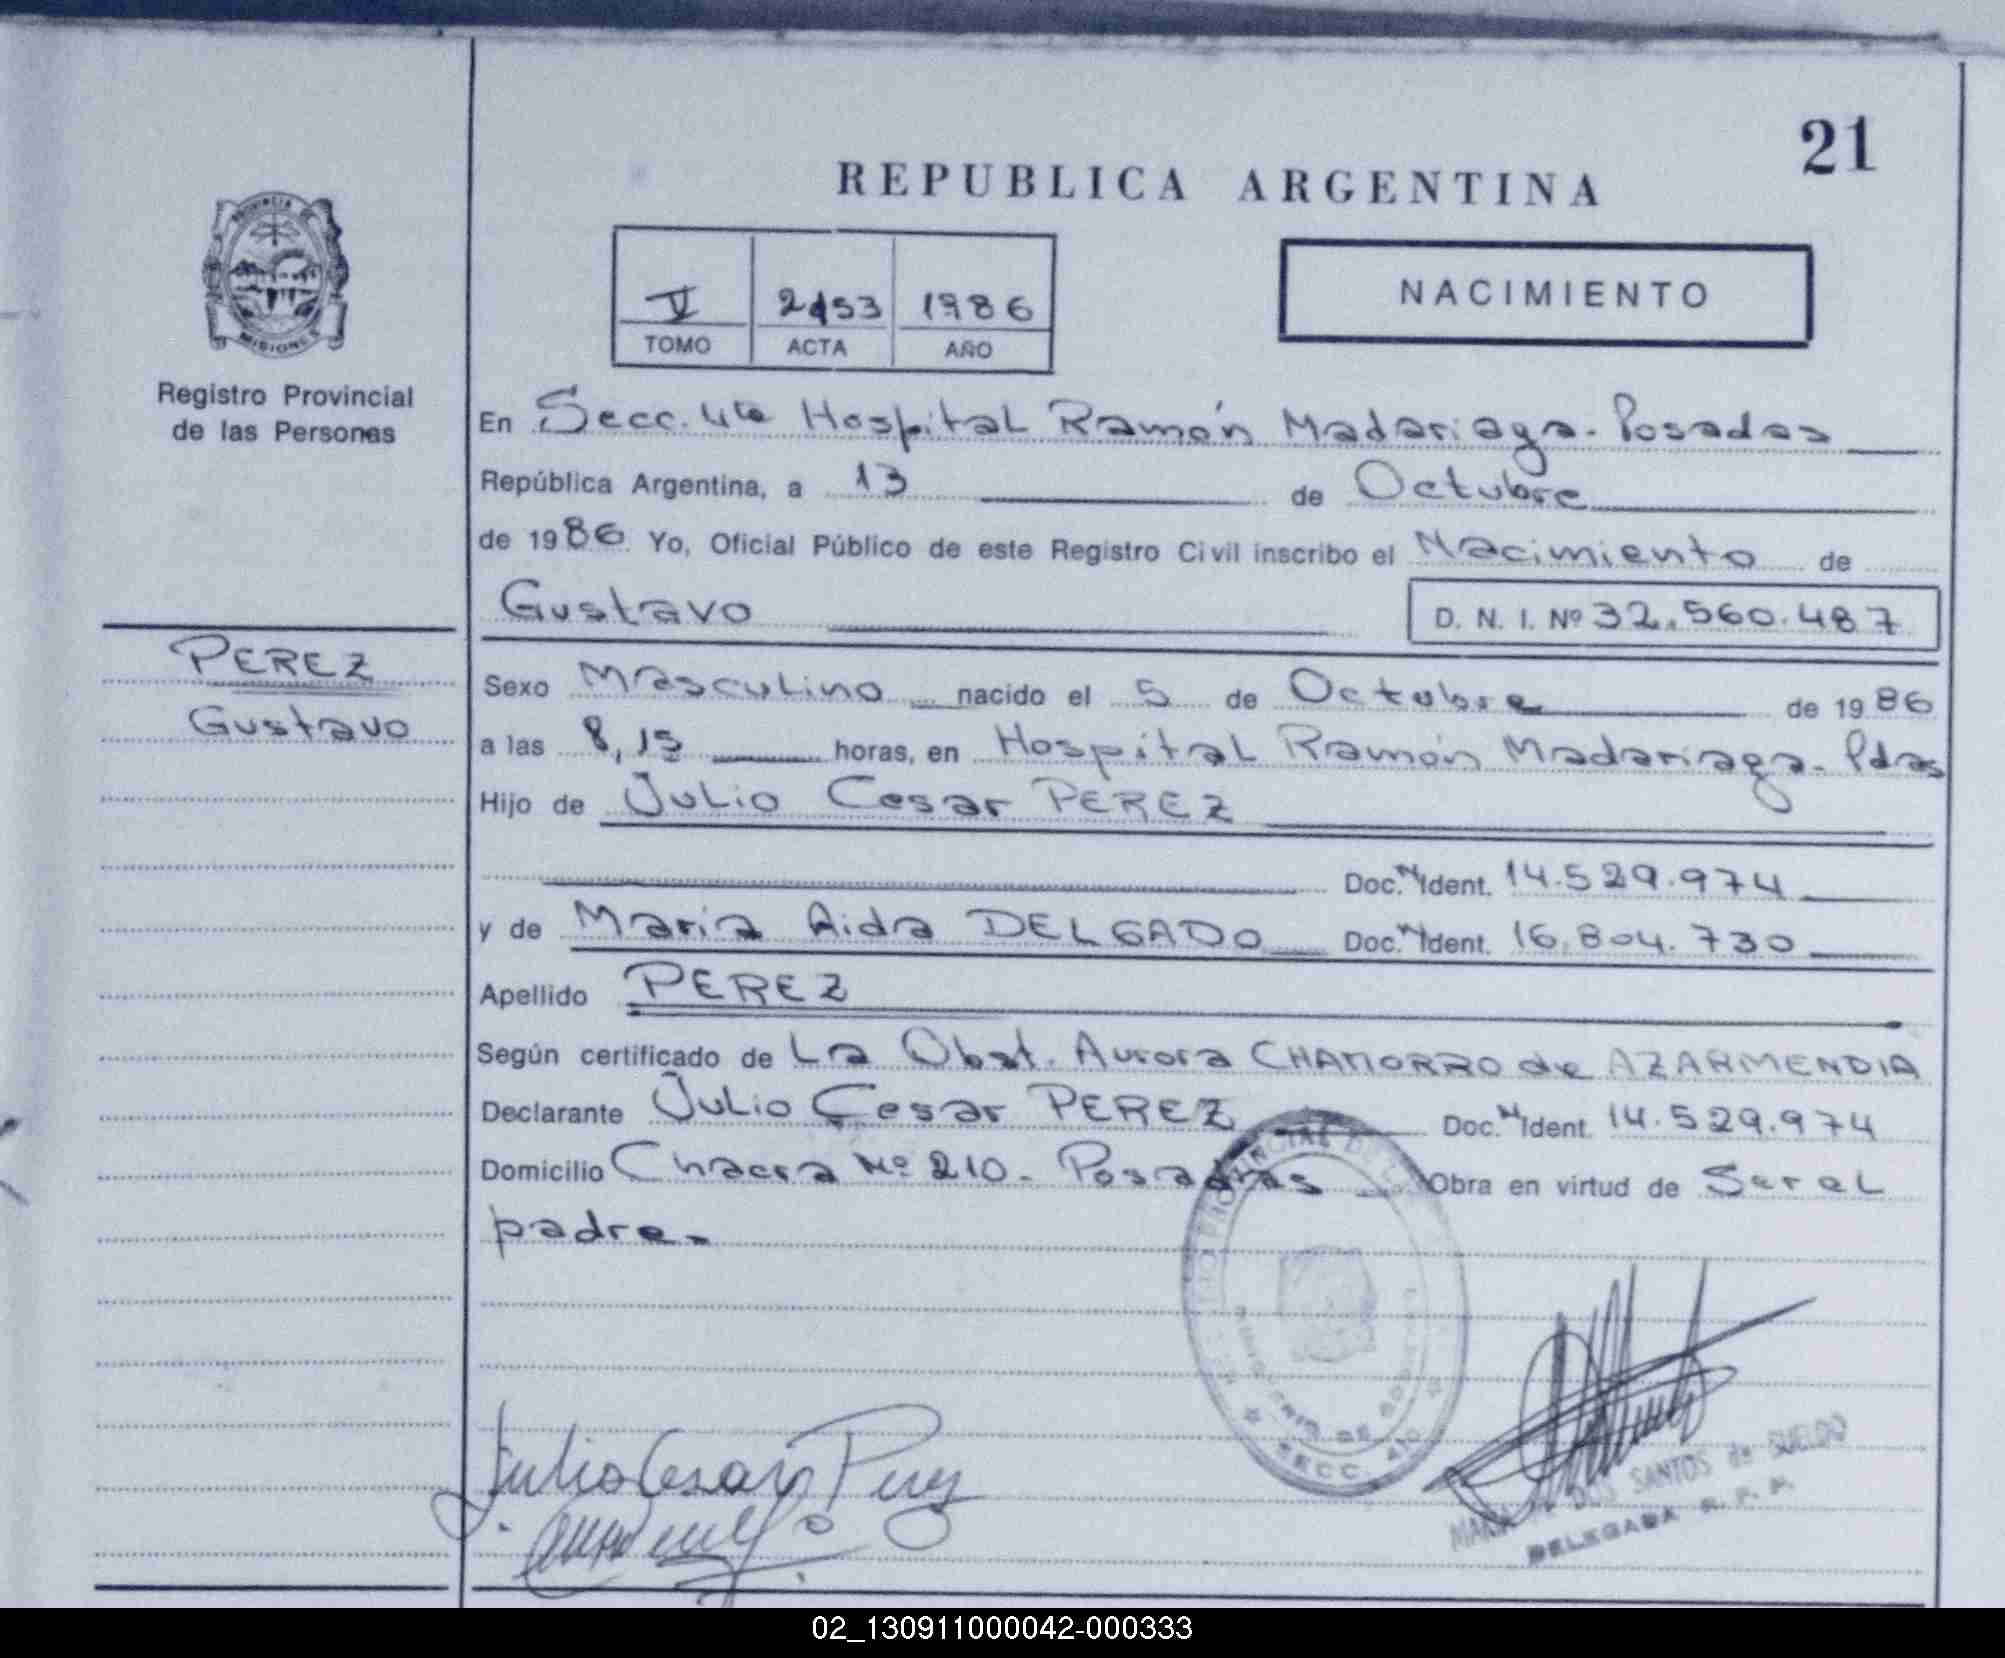 21
REPUBLICA ARGENTINA
PROVINCIA DE
MISIONES
Registro Provincial
de las Personas
V 2153 1986
TOMO ACTA AÑO
NACIMIENTO
En Secc. 4ta Hospital Ramón Madariaga. Posadas
República Argentina, a 13 de Octubre
de 1986. Yo, Oficial Público de este Registro Civil inscribo el Nacimiento de
Gustavo D. N. I. Nº 32.560.487
PEREZ
Gustavo
Sexo Masculino nacido el 5 de Octubre de 1986
a las 8,15 horas, en Hospital Ramón Madariaga. Pdas
Hijo de Julio Cesar PEREZ
Doc. N Ident. 14.529.974
y de Maria Aida DELGADO Doc. N Ident. 16.804.730
Apellido PEREZ
Según certificado de La Obst. Aurora CHAMORRO de AZARMENDIA
Declarante Julio Cesar PEREZ Doc. N Ident. 14.529.974
Domicilio Chacra Nº 210 - Posadas Obra en virtud de Ser el
padre.
SECC. 4
Julio Cesar Perez
DOS SANTOS de SUELDO
DELEGADA R. P. P.
02_130911000042-000333